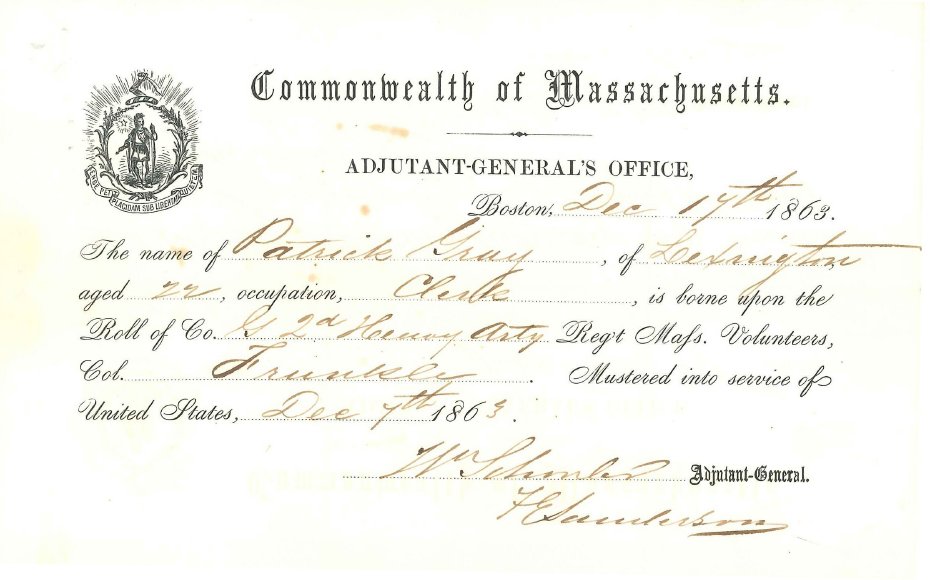 Commonwealth of Massachusetts.
ADJUTANT-GENERAL'S OFFICE,
ENSE PETIT PLACIDAM SUB LIBERTATE QUIETEM
Boston, Dec 17th 1863.
The name of Patrick Gray, of Lexington
aged 22, occupation, Clerk, is borne upon the
Roll of Co. G 2d Heavy Arty Reg't Mass. Volunteers,
Col. Frankle. Mustered into service of
United States, Dec 7th 1863.
Wm Schouler Adjutant-General.
F E Saunderson